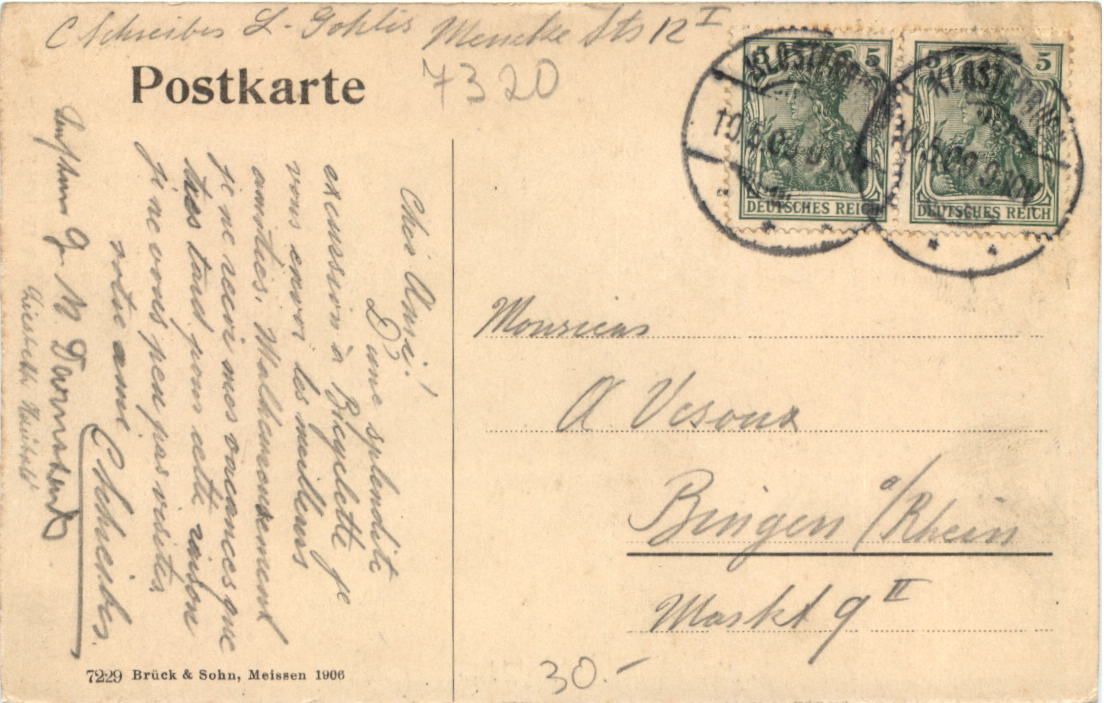 C Schreiber L-Gohlis Mencke Str 12 I
Postkarte
7320
5 5
DEUTSCHES REICH
5 5
DEUTSCHES REICH
Cher Ami!
D'une splendite
excursion à Bicyclette je
vous envoi les meilleurs
amitiés. Malheureusement
je ne recevi mes vacances que
tres tard pour cette raison
je ne vous peu pas visiter
votre ami C Schreiber.
Monsieur
A Vesoux
Bingen a/Rhein
Markt 9 II
30.-
7229 Brück & Sohn, Meissen 1906